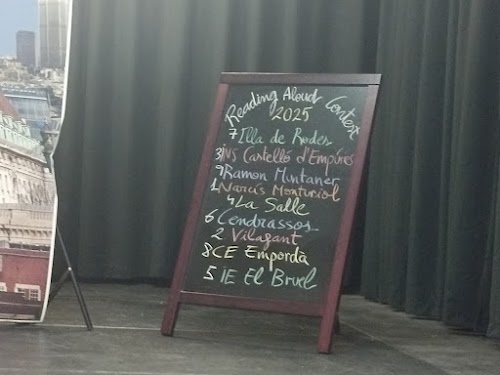 Reading Aloud Contest
2025
7 Illa de Rodes
3 INS Castelló d'Empúries
9 Ramon Muntaner
1 Narcís Monturiol
4 La Salle
6 Cendrassos
2 Vilagant
8 CE Empordà
5 IE El Bruel